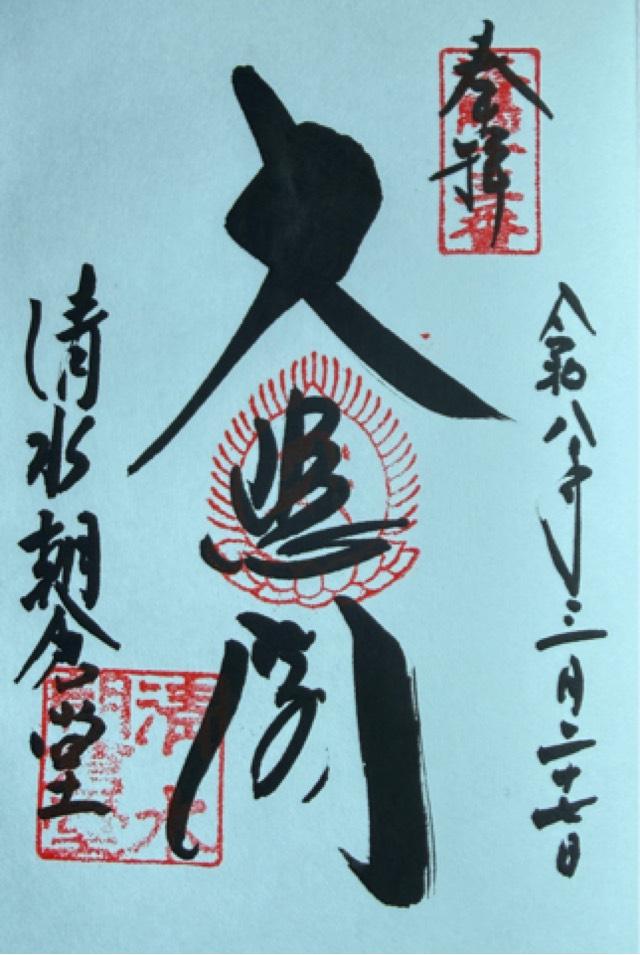 奉拝
令和八年三月二十七日
大悲閣
清水朝倉堂
清水
朝倉堂